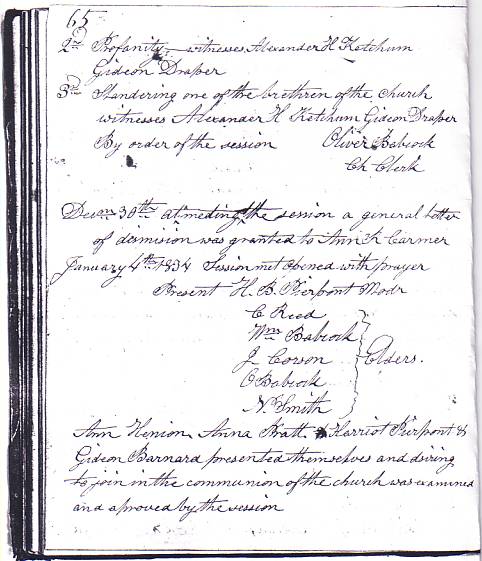 65
2nd Profanity witnesses Alexander H Ketchum
Gideon Draper
3rd Slandering one of the brethren of the church
witnesses Alexander H Ketchum Gideon Draper
By order of the session Oliver Babcock
Ch Clerk
Decm 30th at meding the session a general letter
of dismision was granted to Ann K Carmer
January 4th 1834 Session met opened with prayer
Present H. B. Pierpont Modr
C Reed
Wm Babcock
J Corson Elders.
O Babcock
N. Smith
Ann Henion Anna Pratt & Harriot Pierpont &
Gideon Barnard presented themselves and dsiring
to join in the communion of the church was examined
and aproved by the session